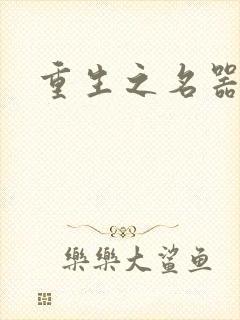 重生之名器
樂樂大鯊鱼